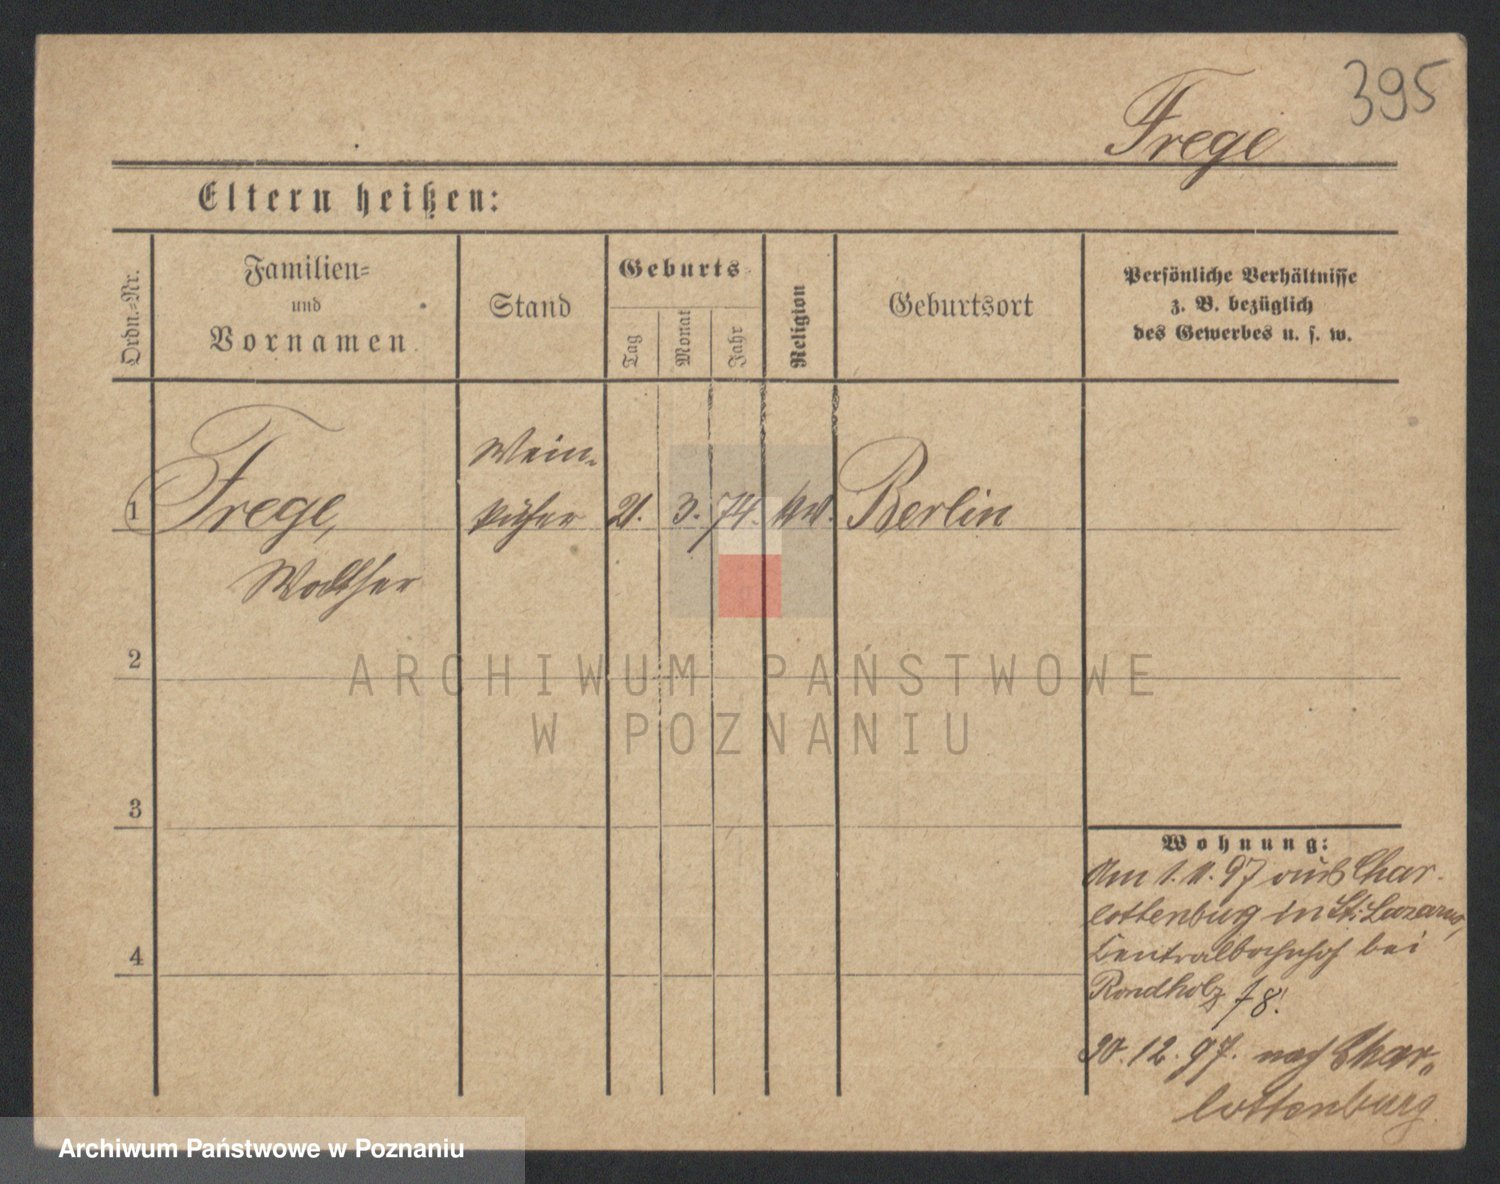 395
Frege
Eltern heißen:
Ordn.-Nr.
Familien-
und
Vornamen.
Stand
Geburts-
Tag
Monat
Jahr
Religion
Geburtsort
Persönliche Verhältnisse
z. B. bezüglich
des Gewerbes u. s. w.
1
Frege,
Walther
Wein-
küfer
21.
3.
74.
ev.
Berlin
2
3
4
Wohnung:
Am 1.11.97 aus Char-
lottenburg in St: Lazarus,
Centralbahnhof bei
Rondholz
30.12.97. nach Char-
lottenburg
ARCHIWUM PAŃSTWOWE
W POZNANIU
Archiwum Państwowe w Poznaniu